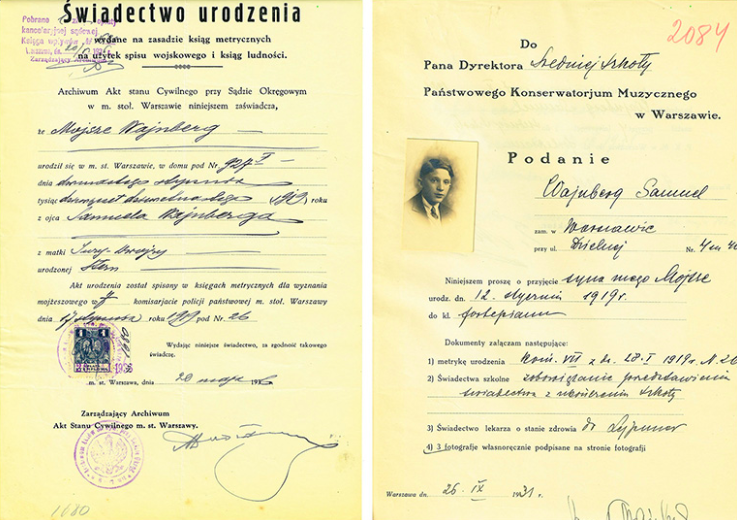 Świadectwo urodzenia
wydane na zasadzie ksiąg metrycznych
na użytek spisu wojskowego i ksiąg ludności.
Pobrano
kancelaryjnej sądowej
Księga wpływów
Zarządzający
Archiwum Akt stanu Cywilnego przy Sądzie Okręgowym
w m. stoł. Warszawie niniejszem zaświadcza,
że Mojsze Wajnberg
urodził się w m. st. Warszawie, w domu pod Nr 927
dnia dwunastego stycznia
tysiąc dziewięćset dziewiętnastego 1919 roku
z ojca Samuela Wajnberga
z matki
urodzonej Stern
Akt urodzenia został spisany w księgach metrycznych dla wyznania
mojżeszowego w 7 komisarjacie policji państwowej m. stoł. Warszawy
dnia 17 stycznia roku 1919 pod Nr 26
Wydając niniejsze świadectwo, za zgodność takowego
świadczę.
1
m. st. Warszawa, dnia 20 maja
Zarządzający Archiwum
Akt Stanu Cywilnego m. st. Warszawy.
1680
2084
Do
Pana Dyrektora Średniej Szkoły
Państwowego Konserwatorjum Muzycznego
w Warszawie.
Podanie
Wajnberg Samuel
zam. w Warszawie
przy ul. Dzielnej Nr. 4
Niniejszem proszę o przyjęcie syna mego Mojsze
urodz. dn. 12 stycznia 1919 r.
do kl. fortepianu
Dokumenty załączam następujące:
1) metrykę urodzenia Kom. VII z dn. 1919 r. N. 26
2) Świadectwa szkolne zobowiązanie przedstawienia
świadectwa z ukończenia szkoły
3) Świadectwo lekarza o stanie zdrowia dr
4) 3 fotografje własnoręcznie podpisane na stronie fotografji
Warszawa dn. 26 IX 1931 r.